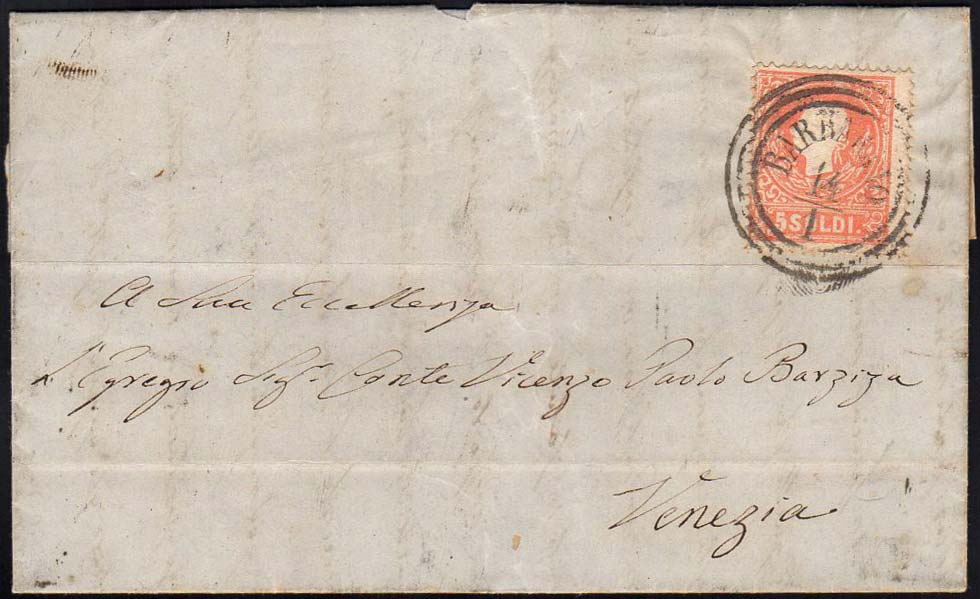 BARBANO
14
1
5 SOLDI.
A Sua Eccellenza
L'Egregio Sigr. Conte Vicenzo Paolo Barziza
Venezia